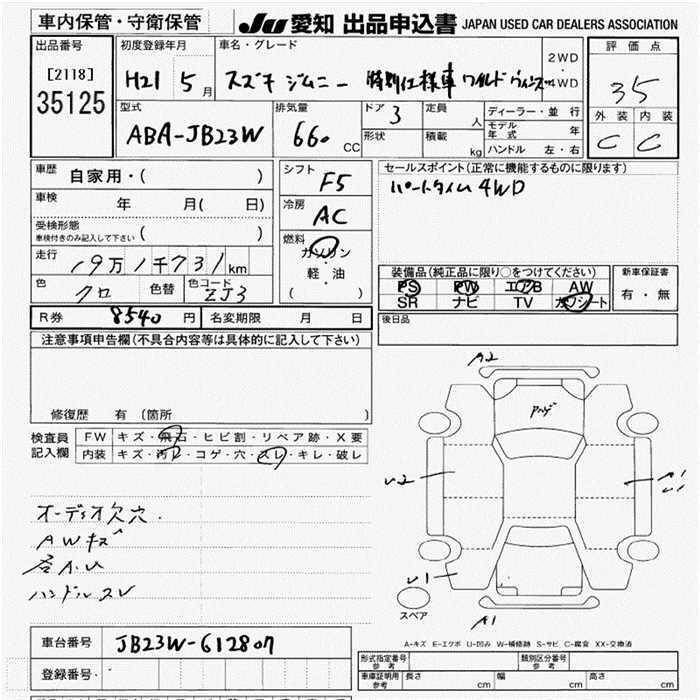 車内保管・守衛保管
JU 愛知 出品申込書 JAPAN USED CAR DEALERS ASSOCIATION
出品番号
[2118]
35125
初度登録年月
H21 5月
車名・グレード
スズキ ジムニー 特別仕様車 ワイルドウインズ
2WD
・
4WD
評価点
35
外装 内装
C C
型式
ABA-JB23W
排気量
660 CC
ドア 3
形状
定員 人
積載 kg
ディーラー・並行
モデル年式 年
ハンドル 左・右
車歴 自家用・( )
車検 年 月( 日)
受検形態
車検付きのみ記入して下さい ( )
走行 19万1千731km
色 クロ 色替 色コード ZJ3
シフト F5
冷房 AC
燃料
ガソリン
・
軽・油
( )
セールスポイント(正常に機能するものに限ります)
パートタイム4WD
装備品(純正品に限り○をつけてください)
PS PW エアB AW
SR ナビ TV カワシート
新車保証書
有・無
R券 8540円 名変期限 月 日
後日品
注意事項申告欄(不具合内容等は具体的に記入して下さい)
修復歴 有 (箇所 )
検査員記入欄
FW キズ・飛石・ヒビ割・リペア跡・X要
内装 キズ・汚レ・コゲ・穴・スレ・キレ・破レ
オーディオ欠穴.
AWキズ
ハンドルスレ
A2
U2
A1
U1
U1
スペア
A1
A-キズ E-エクボ U-凹み W-補修跡 S-サビ C-腐食 XX-交換済
車台番号 JB23W-612807
登録番号
形式指定番号 参考
類別区分番号 参考
車庫証明用 参考 長さ cm 幅 cm 高さ cm